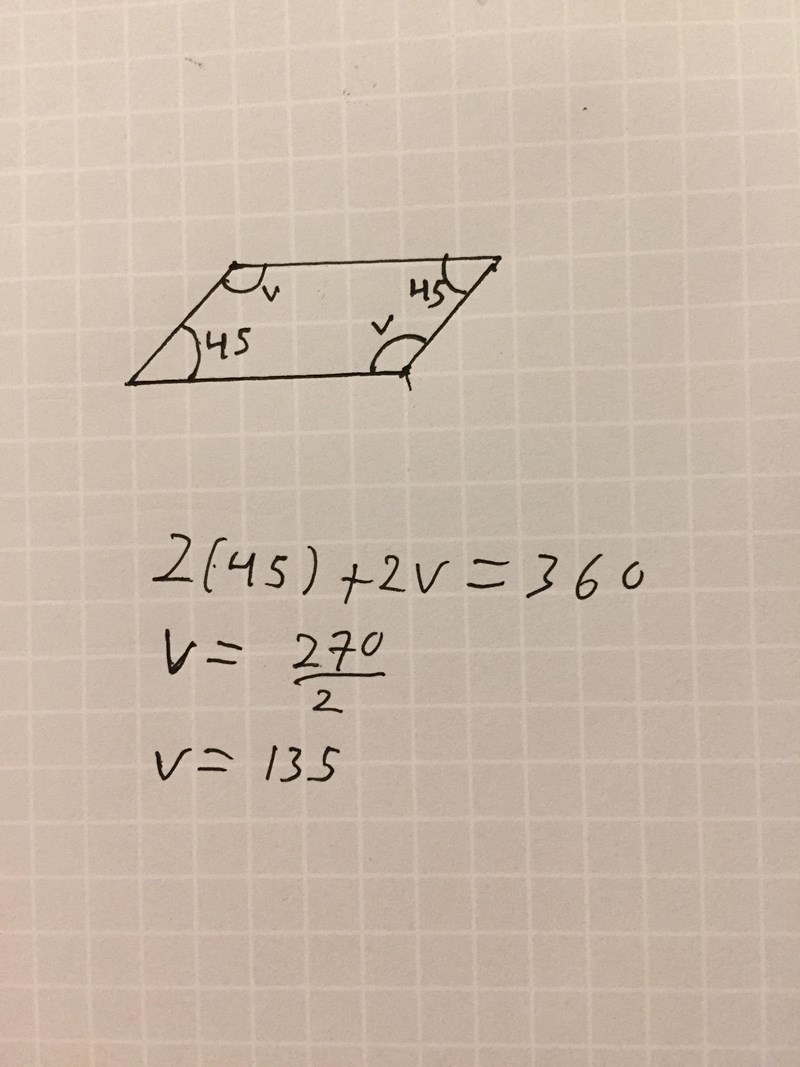 v
45
v
45
2(45) + 2v = 360
v = 270/2
v = 135